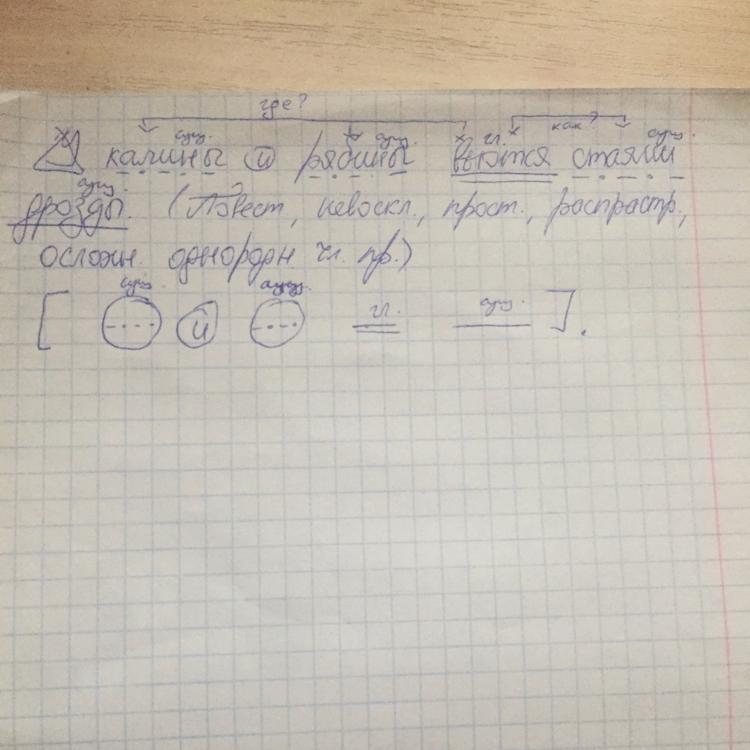 где?
сущ. сущ. гл. как? сущ.
калины и рябины вьются стаями
сущ.
дрозды. (Повест., невоскл., прост., распрастр.,
осложн. однордн чл. пр.)
сущ. сущ. гл. сущ.
[ и ].